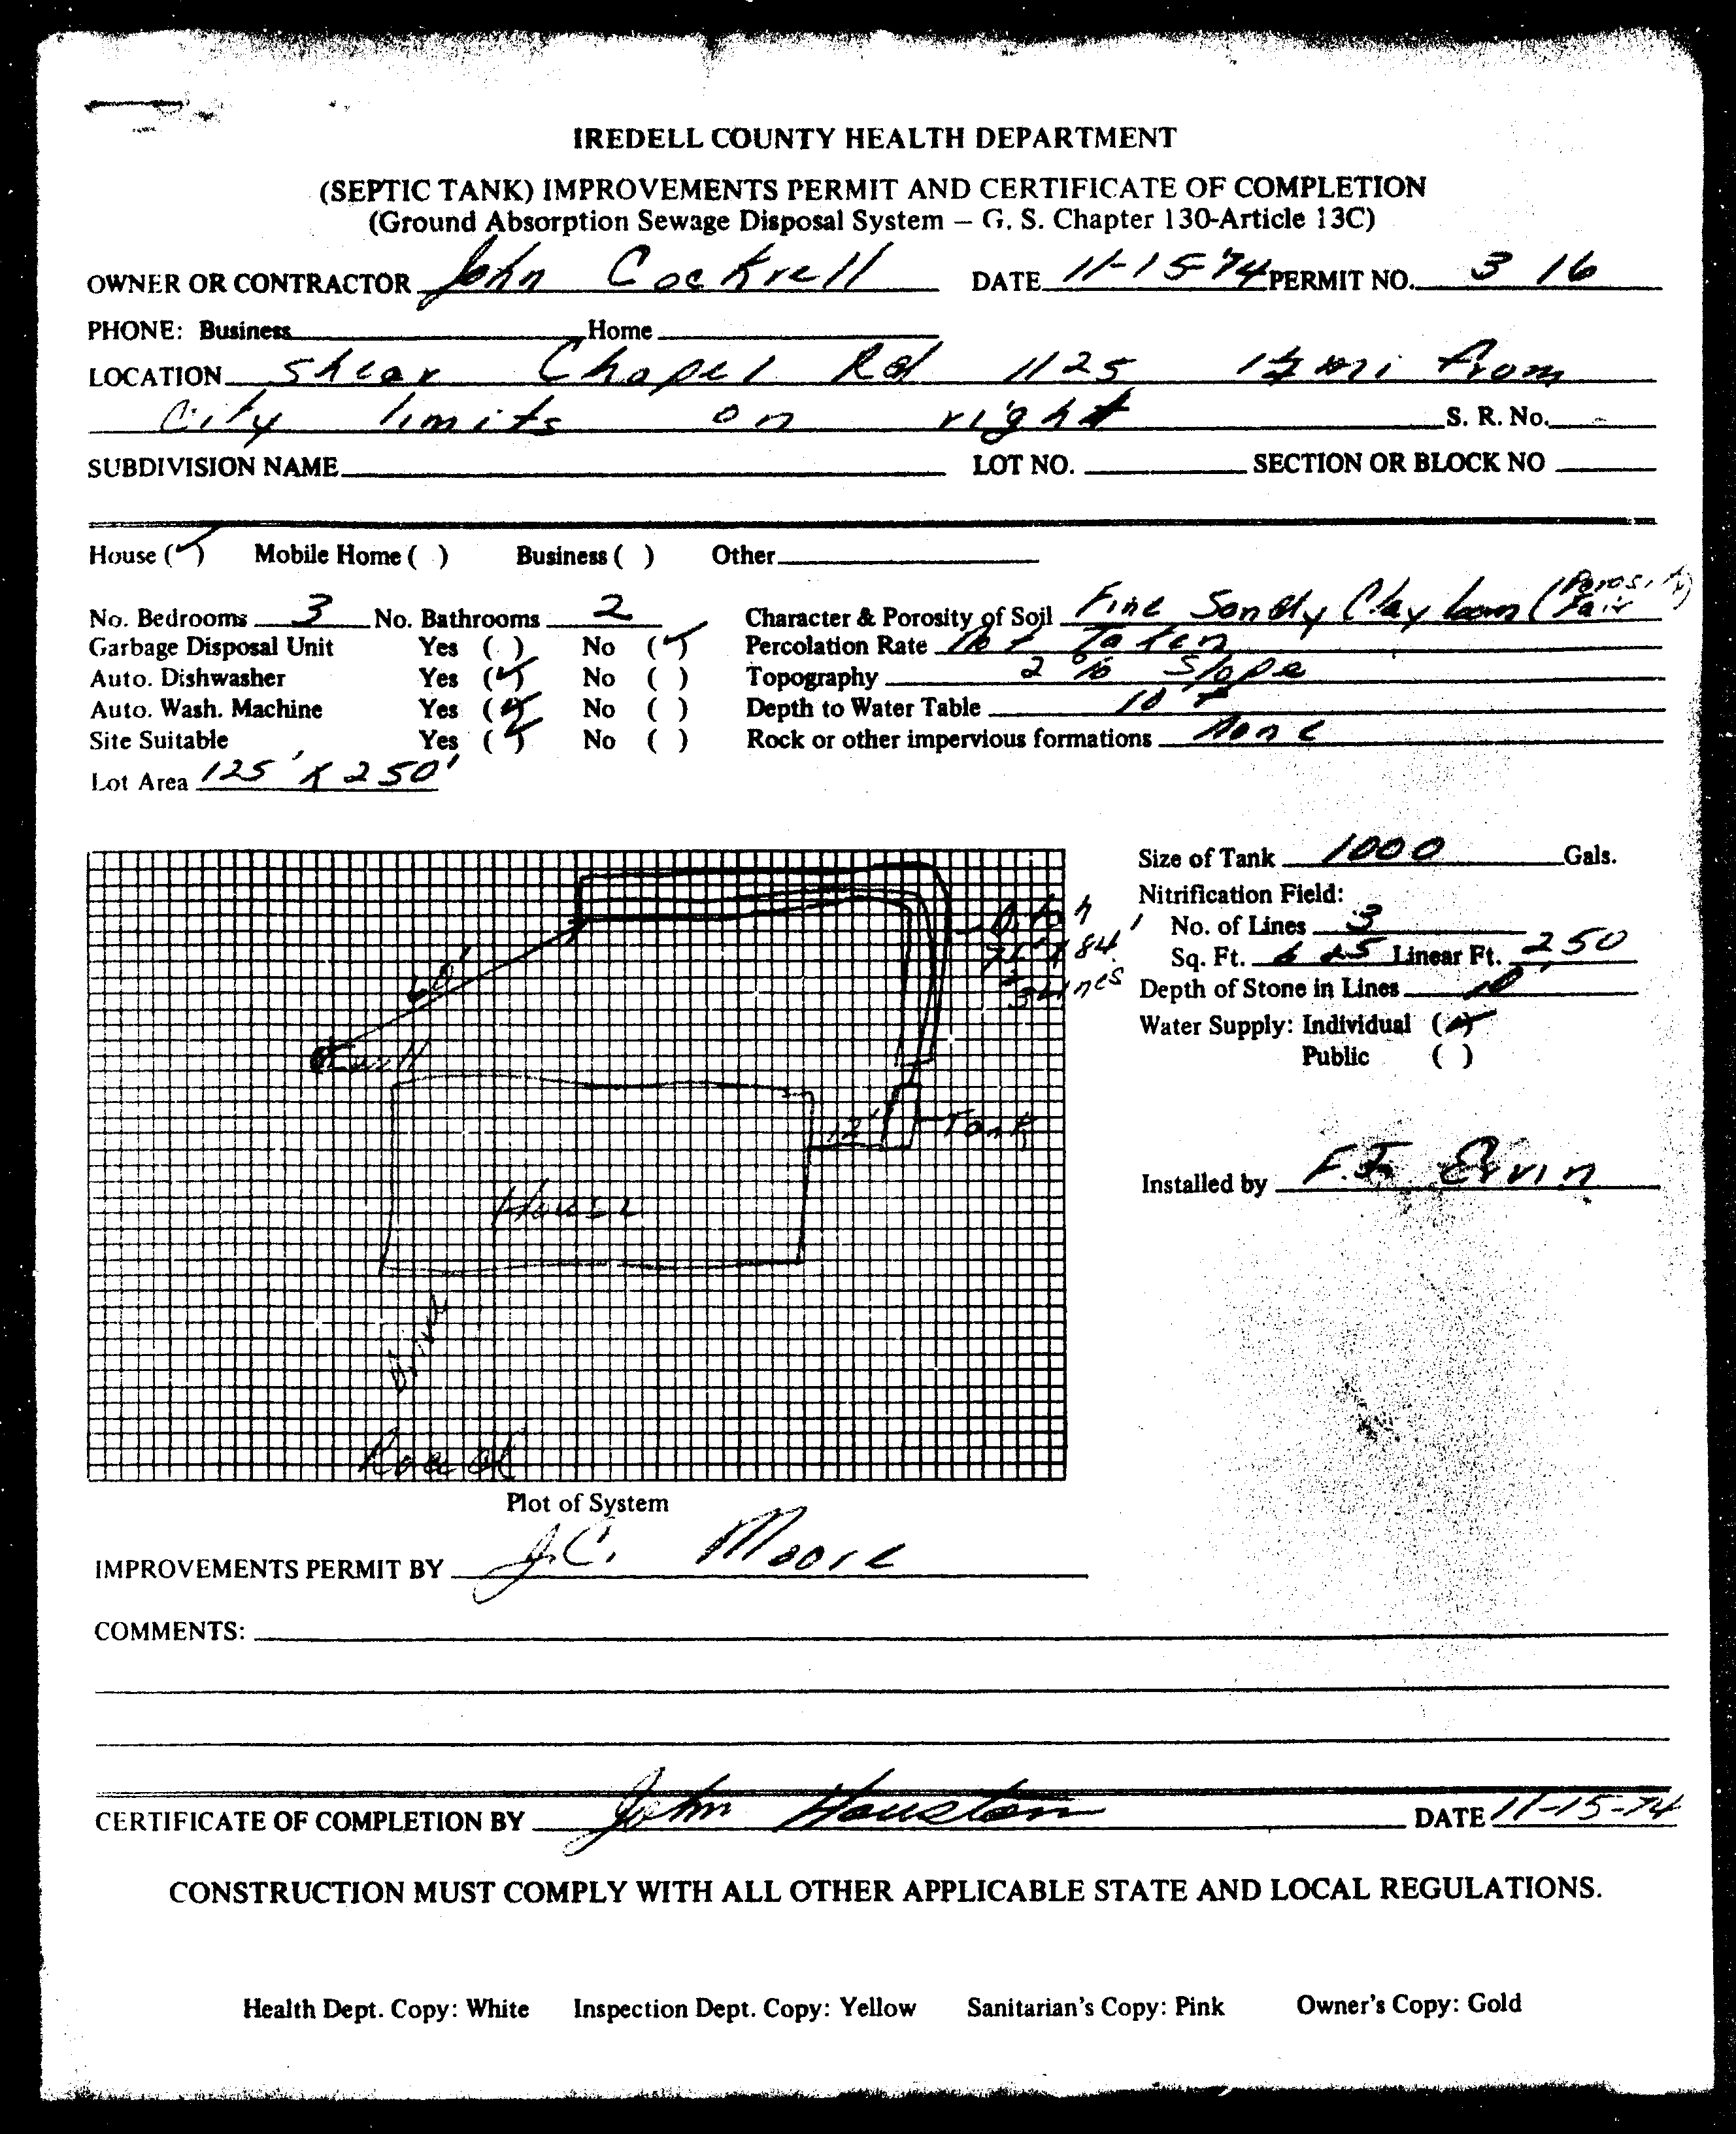 IREDELL COUNTY HEALTH DEPARTMENT
(SEPTIC TANK) IMPROVEMENTS PERMIT AND CERTIFICATE OF COMPLETION
(Ground Absorption Sewage Disposal System – G. S. Chapter 130-Article 13C)
OWNER OR CONTRACTOR John Cockrell DATE 11-15-74 PERMIT NO. 316
PHONE: Business Home
LOCATION Shear Chapel Rd 1125 1½ mi from
City limits on right S. R. No.
SUBDIVISION NAME LOT NO. SECTION OR BLOCK NO
House (✓) Mobile Home ( ) Business ( ) Other
No. Bedrooms 3 No. Bathrooms 2 Character & Porosity of Soil Fine Sandy Clay Loam (Porosity Fair)
Garbage Disposal Unit Yes ( ) No (✓) Percolation Rate Not Taken
Auto. Dishwasher Yes (✓) No ( ) Topography 2 % Slope
Auto. Wash. Machine Yes (✓) No ( ) Depth to Water Table 10'+
Site Suitable Yes (✓) No ( ) Rock or other impervious formations None
Lot Area 125' X 250'
Size of Tank 1000 Gals.
Nitrification Field:
No. of Lines 3
Sq. Ft. Linear Ft. 250
Depth of Stone in Lines
Water Supply: Individual (✓)
Public ( )
84'
3 Lines
60'
Well
12' Tank
House
Drive
Road
Installed by F.F. Ervin
Plot of System
IMPROVEMENTS PERMIT BY J.C. Moore
COMMENTS:
CERTIFICATE OF COMPLETION BY John Houston DATE 11-15-74
CONSTRUCTION MUST COMPLY WITH ALL OTHER APPLICABLE STATE AND LOCAL REGULATIONS.
Health Dept. Copy: White Inspection Dept. Copy: Yellow Sanitarian's Copy: Pink Owner's Copy: Gold